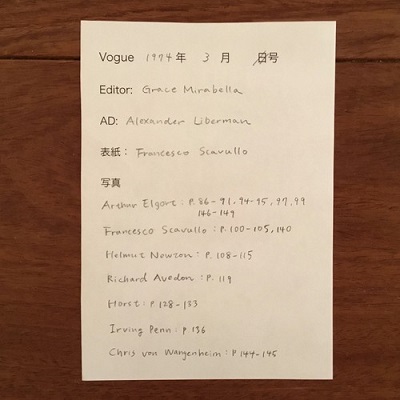 Vogue 1974年 3月 日号
Editor: Grace Mirabella
AD: Alexander Liberman
表紙: Francesco Scavullo
写真
Arthur Elgort: P.86-91, 94-95, 97, 99
146-149
Francesco Scavullo: P.100-105, 140
Helmut Newton: P.108-115
Richard Avedon: P.119
Horst: P.128-133
Irving Penn: P.136
Chris von Wangenheim: P.144-145